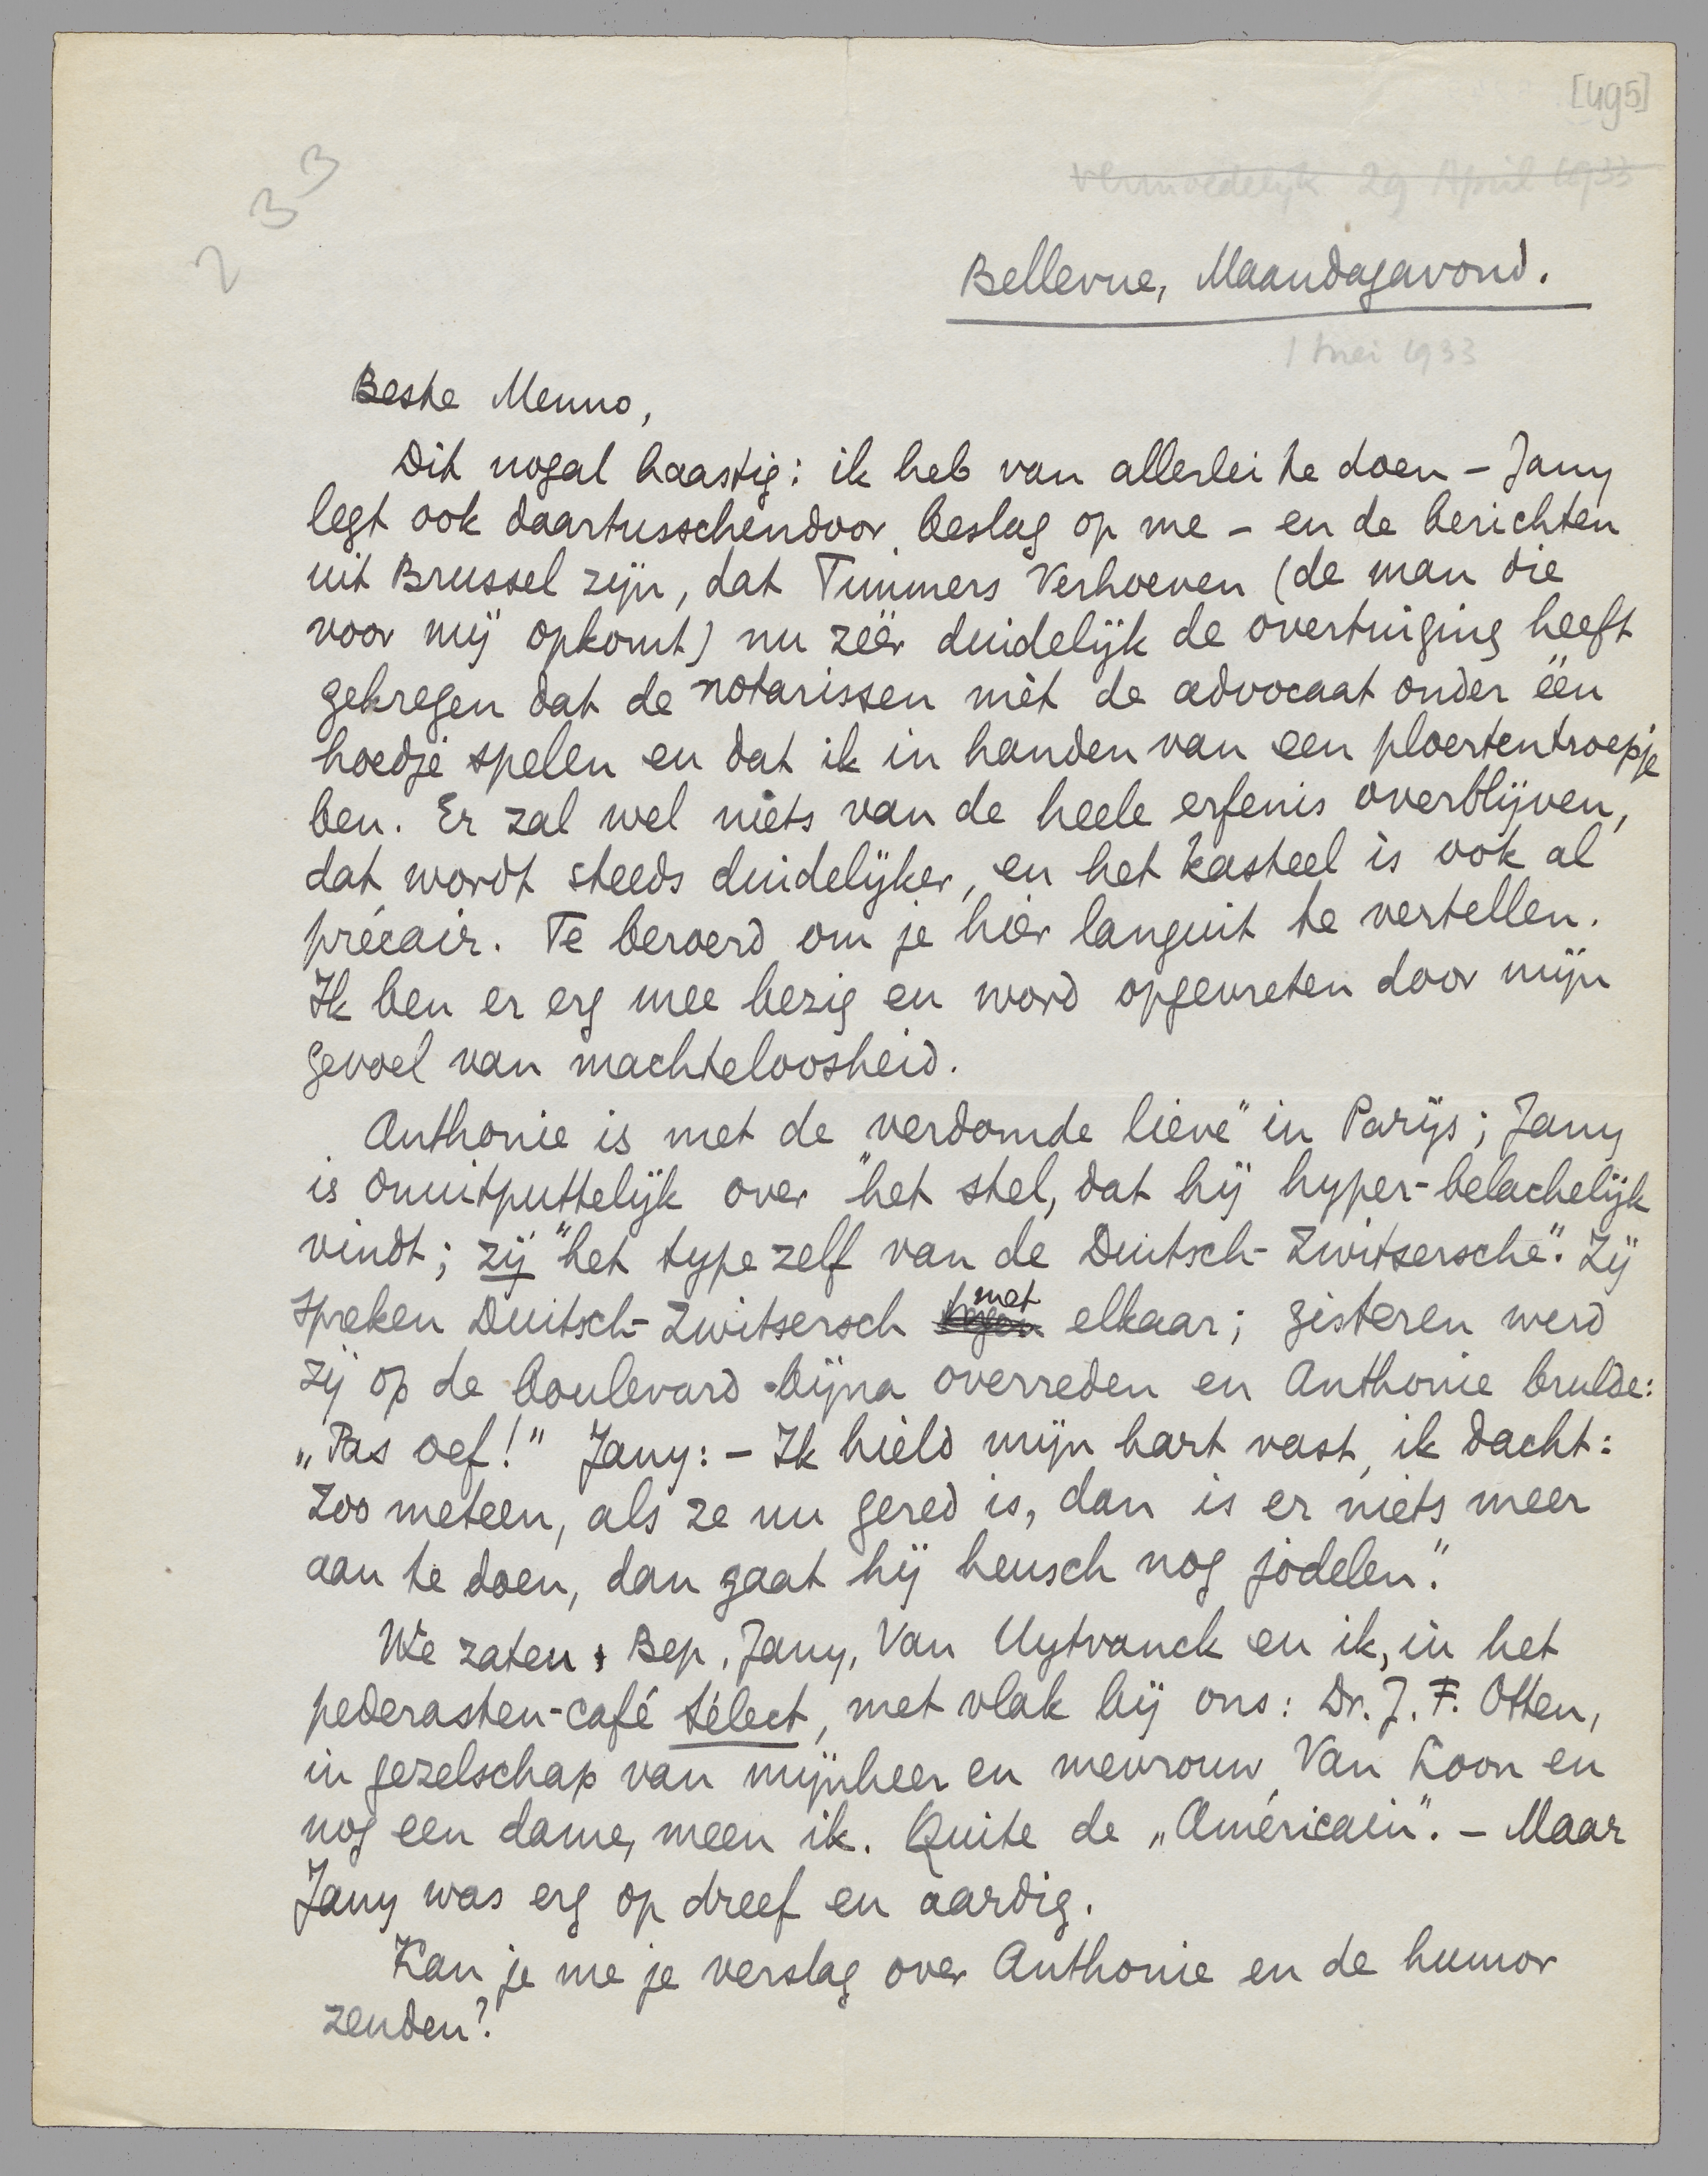 [495]
233
vermoedelyk 29 April 1933
Bellevue, Maandagavond.
1 mei 1933
Beste Menno,
Dit nogal haastig: ik heb van allerlei te doen – Jany
legt ook daartusschendoor beslag op me – en de berichten
uit Brussel zijn, dat Timmers Verhoeven (de man die
voor mij opkomt) nu zéér duidelijk de overtuiging heeft
gekregen dat de notarissen mèt de advocaat onder één
hoedje spelen en dat ik in handen van een ploertentroepje
ben. Er zal wel niets van de heele erfenis overblijven,
dat wordt steeds duidelijker, en het kasteel is ook al
précair. Te beroerd om je hier languit te vertellen.
Ik ben er erg mee bezig en word opgevreten door mijn
gevoel van machteloosheid.
Anthonie is met de "verdomde lieve" in Parijs; Jany
is onuitputtelijk over "het stel, dat hij hyper-belachelijk
vindt; zij "het type zelf van de Duitsch-Zwitsersche". Zij
spreken Duitsch-Zwitsersch tegen met elkaar; gisteren werd
zij op de boulevard bijna overreden en Anthonie brulde:
„Pas oef!” Jany: – Ik hield mijn hart vast, ik dacht:
zoo meteen, als ze nu gered is, dan is er niets meer
aan te doen, dan gaat hij heusch nog jodelen."
We zaten, Bep, Jany, Van Uytvanck en ik, in het
pederasten-café Sélect, met vlak bij ons: Dr. J. F. Otten,
in gezelschap van mijnheer en mevrouw Van Loon en
nog een dame, meen ik. Quite de „Américain”. – Maar
Jany was erg op dreef en aardig.
Kan je me je verslag over Anthonie en de humor
zenden?